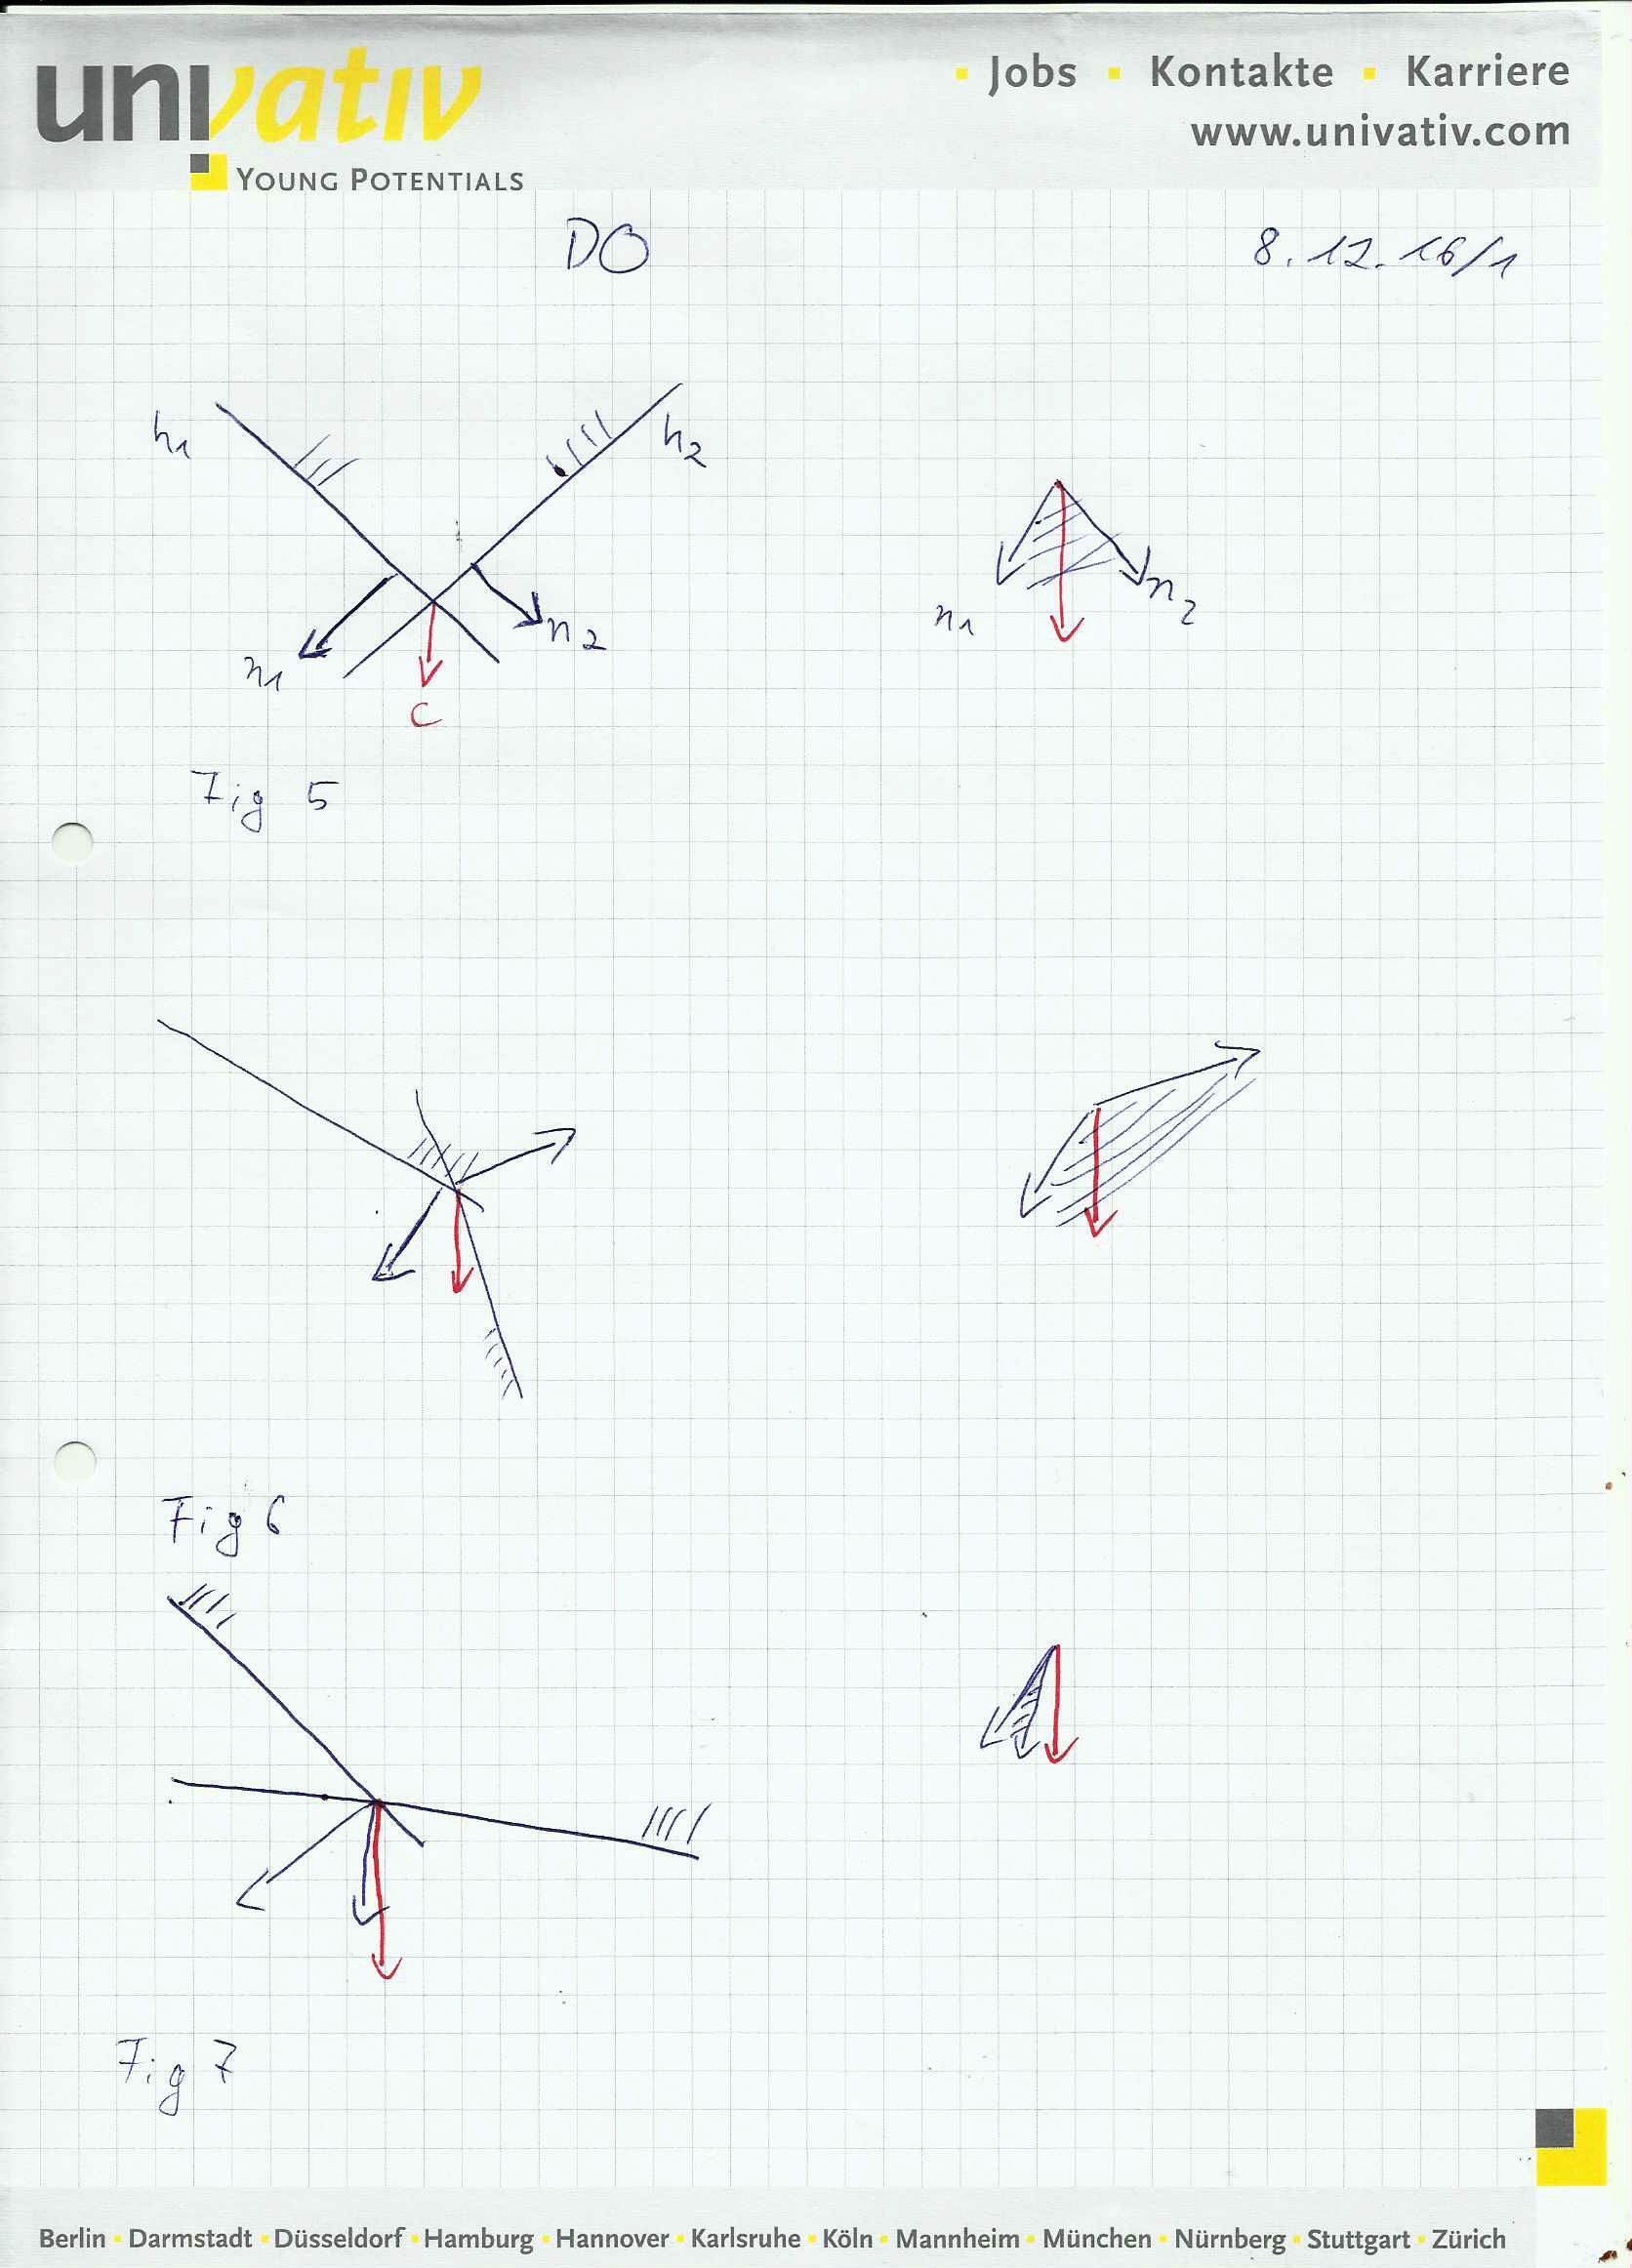 univativ
YOUNG POTENTIALS
Jobs Kontakte Karriere
www.univativ.com
DO
8.12.16/1
h1
h2
n1
n2
c
n1
n2
Fig 5
Fig 6
Fig 7
Berlin Darmstadt Düsseldorf Hamburg Hannover Karlsruhe Köln Mannheim München Nürnberg Stuttgart Zürich